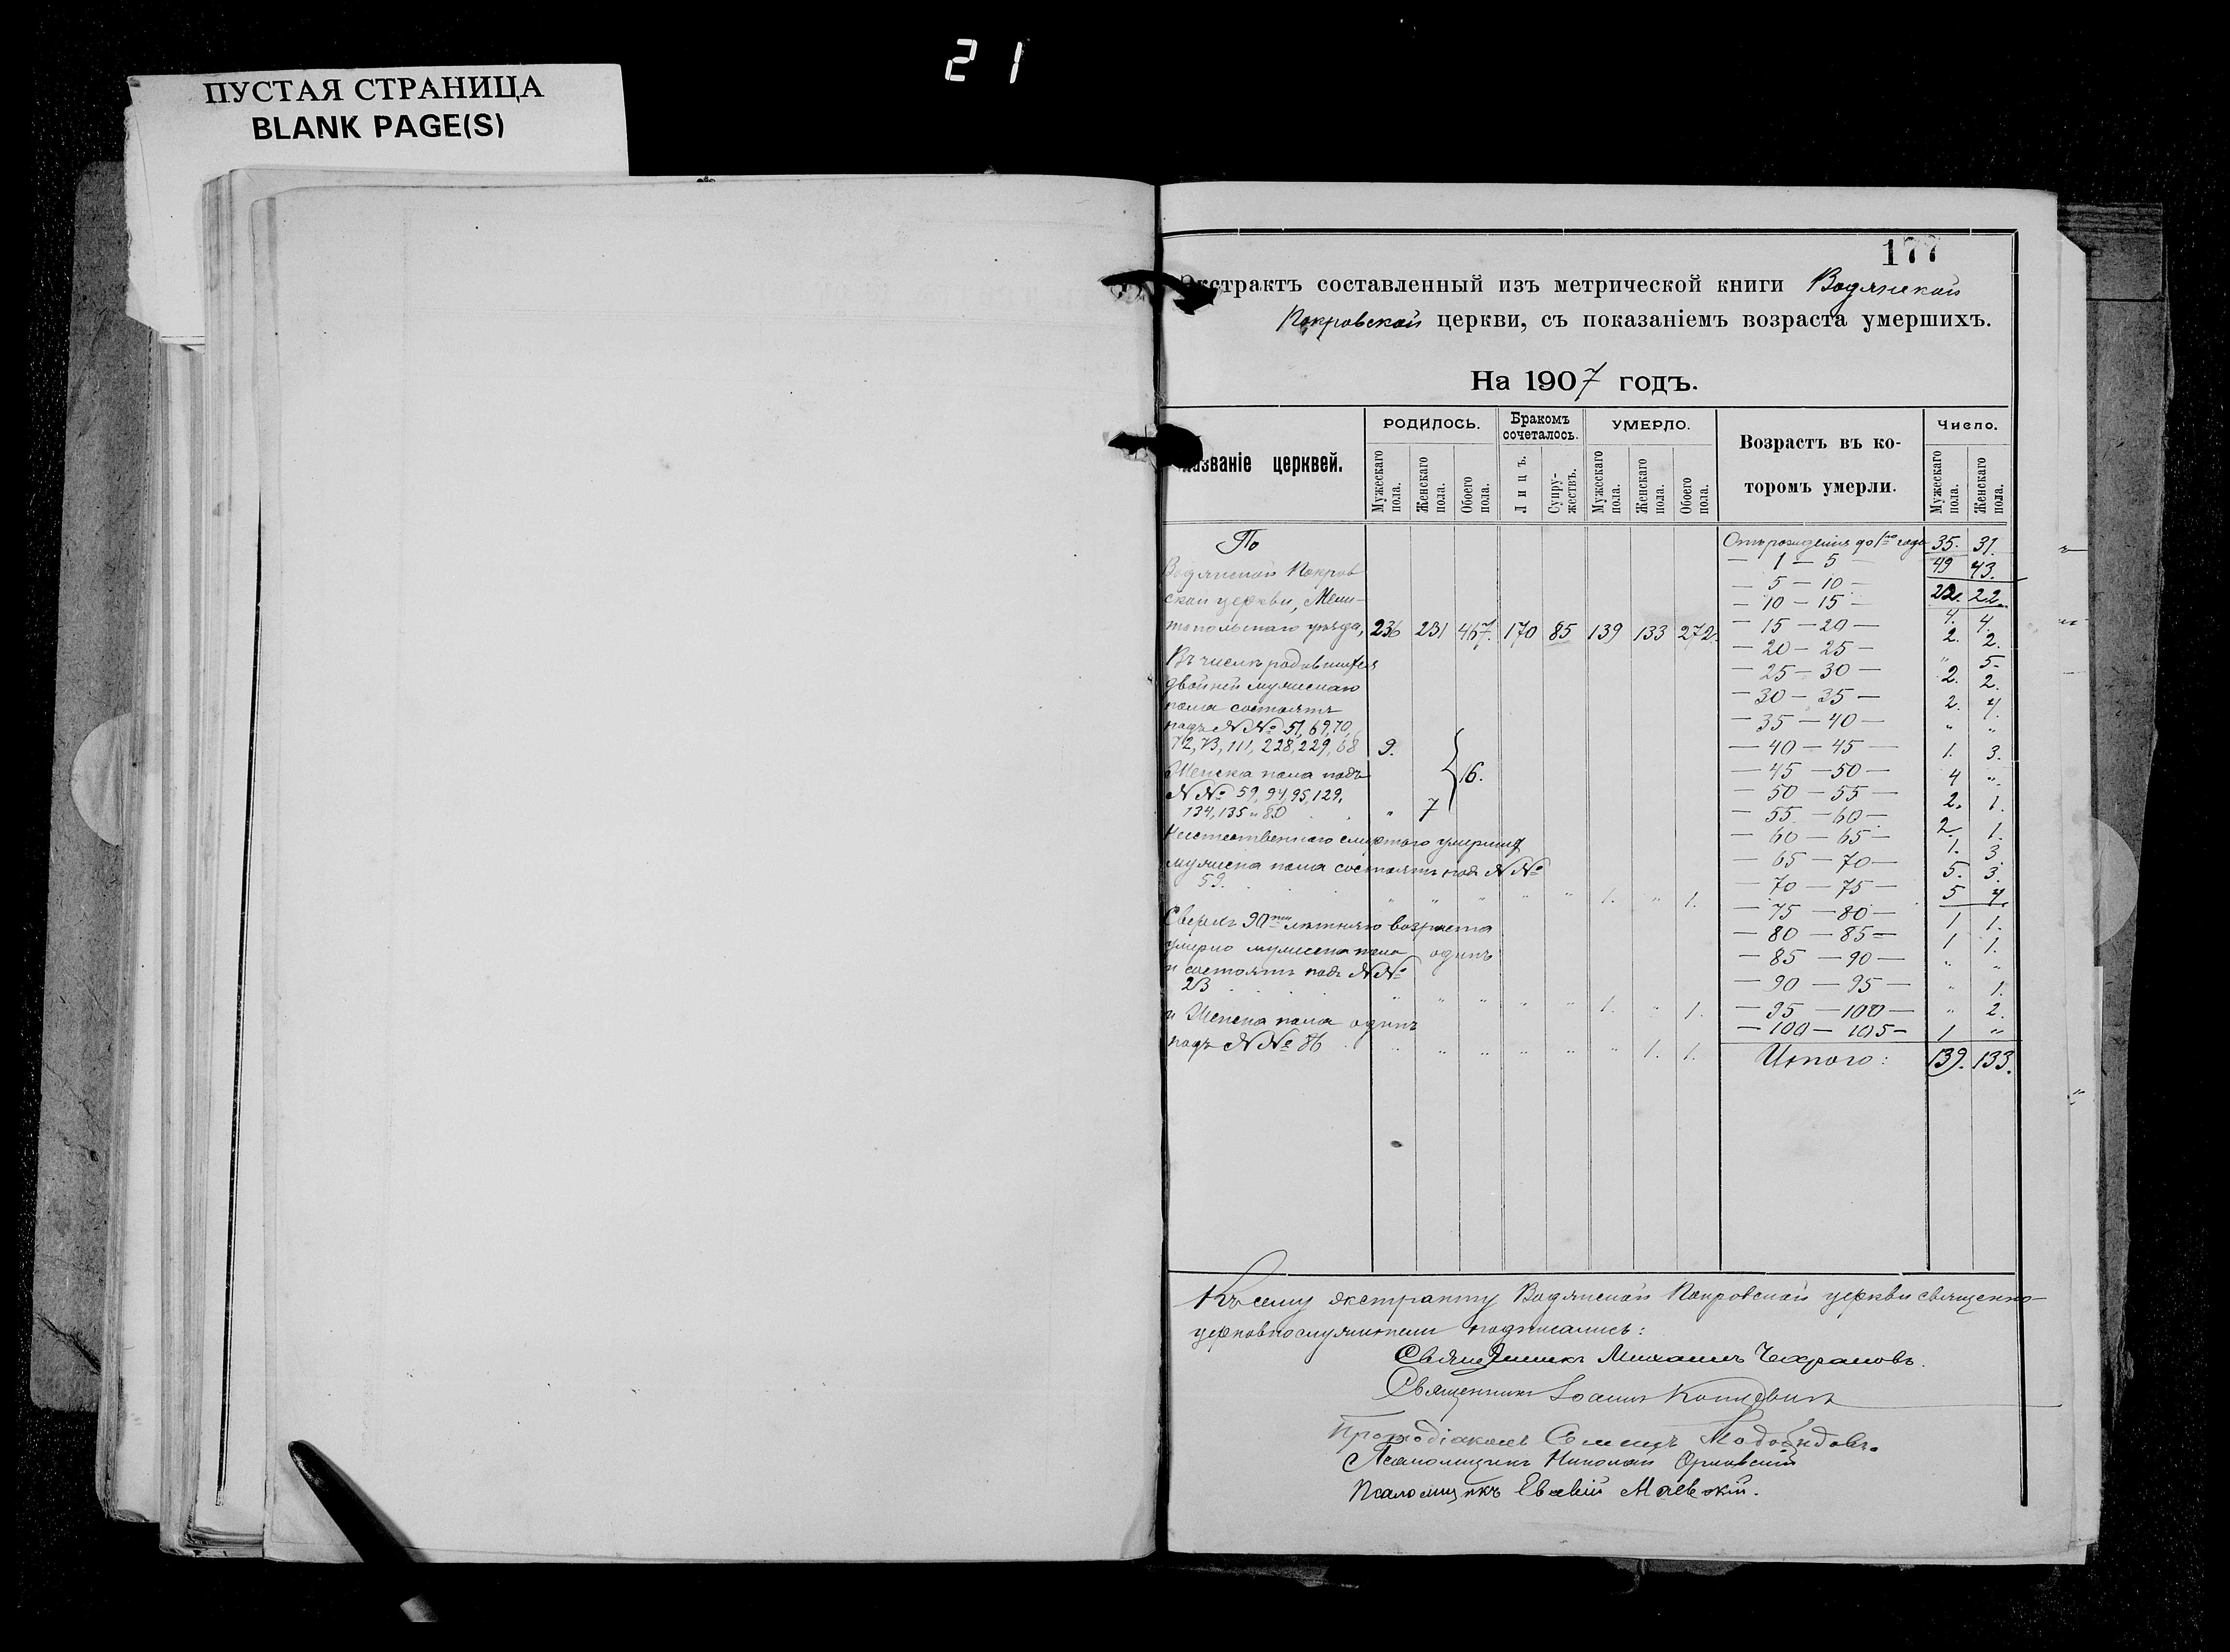 21
ПУСТАЯ СТРАНИЦА
BLANK PAGE(S)
177
Экстрактъ составленный изъ метрической книги Водянской
Покровской церкви, съ показаніемъ возраста умершихъ.
На 1907 годъ.
Названіе церквей.
РОДИЛОСЬ.
Бракомъ сочеталось.
УМЕРЛО.
Возрастъ въ которомъ умерли.
Число.
Мужескаго пола.
Женскаго пола.
Обоего пола.
Лицъ.
Супружествъ.
Мужескаго пола.
Женскаго пола.
Обоего пола.
Мужескаго пола.
Женскаго пола.
По
Водянской Покров
ской церкви, Мели-
топольскаго уѣзда, 236 231 467. 170 85 139 133 272.
Въ числѣ родившихся
двойней мужескаго
пола состоятъ
подъ №№ 51, 69, 70,
72, 73, 111, 228, 229, 68 9.
Женска пола подъ 16.
№№ 59, 94, 95, 129,
134, 135 и 80 " 7
Неестественною смертью умершихъ
мужеска пола состоятъ подъ №№
59. " " " " " 1. " 1.
Сверхъ 90ти лѣтняго возраста
умерло мужеска пола одинъ
и состоитъ подъ №№
23 " " " " " 1. " 1.
и Женска пола одинъ
подъ №№ 86 " " " " " " 1. 1.
Отъ рожденія до 1го года 35. 31.
— 1 — 5 — 49 43.
— 5 — 10 — 22. 22.
— 10 — 15 — 4. 4.
— 15 — 20 — 2. 2.
— 20 — 25 — " 5.
— 25 — 30 — 2. 2.
— 30 — 35 — 2. 4.
— 35 — 40 — " "
— 40 — 45 — 1. 3.
— 45 — 50 — 4 "
— 50 — 55 — 2. 1.
— 55 — 60 — 2. 1.
— 60 — 65 — 1. 3.
— 65 — 70 — 5. 3.
— 70 — 75 — 5 4.
— 75 — 80 — 1 1.
— 80 — 85 — 1 1.
— 85 — 90 — " "
— 90 — 95 — " 1.
— 95 — 100 — " 2.
— 100 — 105 — 1 "
Итого: 139. 133.
Къ сему экстракту Водянской Покровской церкви священно-
церковнослужители подписались:
Священникъ Михаилъ
Священникъ Іоаннъ
Протодіаконъ
Псаломщикъ Николай Орловскій
Псаломщикъ Евсевій Маевскій.